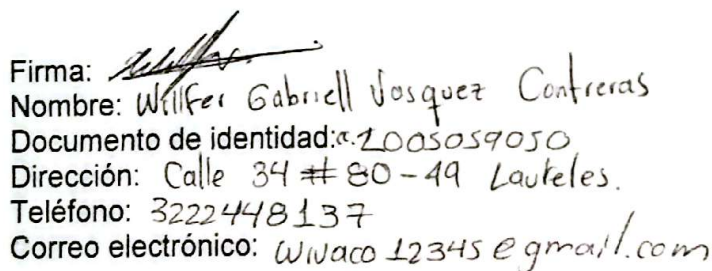 Firma:
Nombre: Willfer Gabriell Vasquez Contreras
Documento de identidad: 1005059050
Dirección: Calle 34 # 80-49 Laureles.
Teléfono: 3222448137
Correo electrónico: wivaco12345@gmail.com